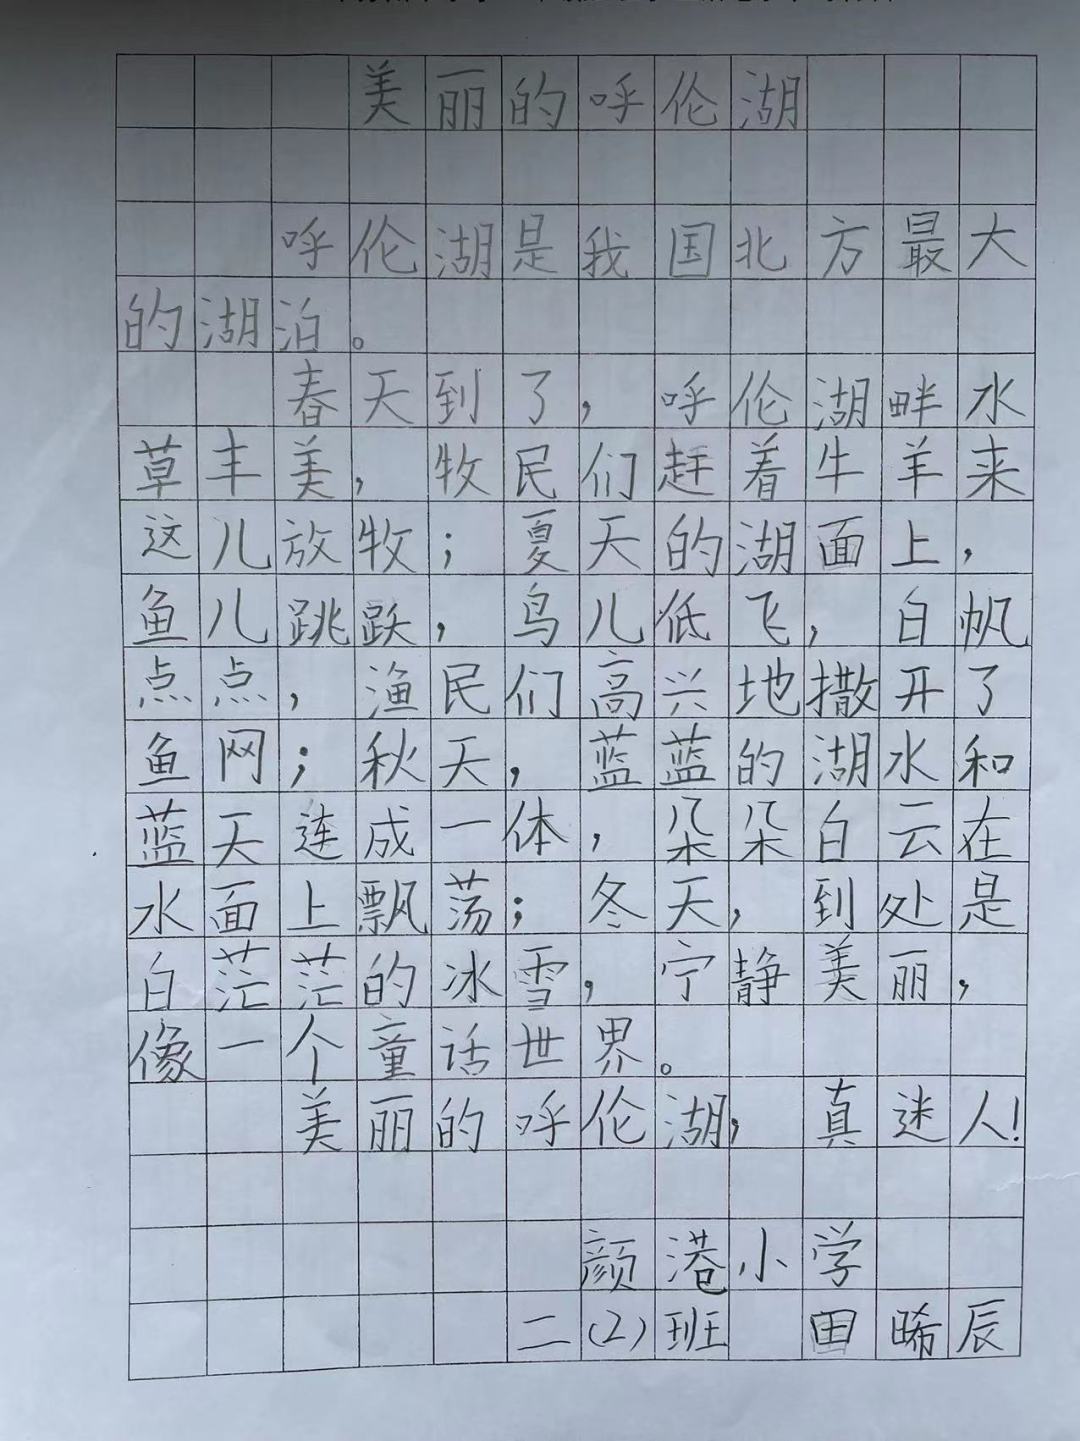 美丽的呼伦湖
呼伦湖是我国北方最大
的湖泊。
春天到了，呼伦湖畔水
草丰美，牧民们赶着牛羊来
这儿放牧；夏天的湖面上，
鱼儿跳跃，鸟儿低飞，白帆
点点，渔民们高兴地撒开了
鱼网；秋天，蓝蓝的湖水和
蓝天连成一体，朵朵白云在
水面上飘荡；冬天，到处是
白茫茫的冰雪，宁静美丽，
像一个童话世界。
美丽的呼伦湖，真迷人！
颜港小学
二(2)班 田晞辰